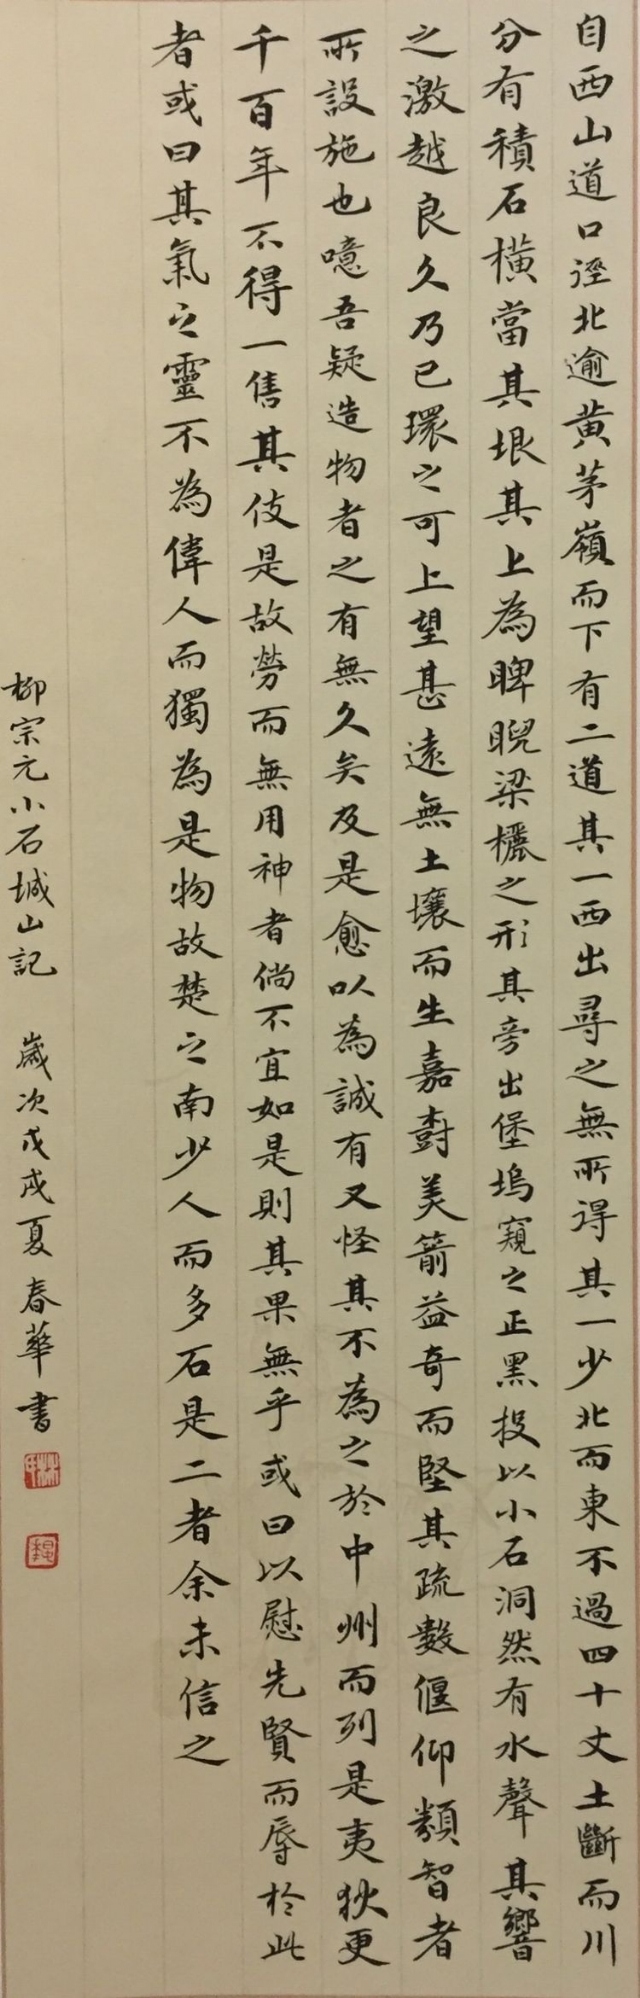 自西山道口徑北逾黄茅嶺而下有二道其一西出尋之無所得其一少北而東不過四十丈土斷而川
分有積石横當其垠其上為睥睨梁欐之形其旁出堡塢窺之正黑投以小石洞然有水聲其響
之激越良久乃已環之可上望甚遠無土壤而生嘉樹美箭益奇而堅其疏數偃仰類智者
所設施也噫吾疑造物者之有無久矣及是愈以為誠有又怪其不為之於中州而列是夷狄更
千百年不得一售其伎是故勞而無用神者倘不宜如是則其果無乎或曰以慰先賢而辱於此
者或曰其氣之靈不為偉人而獨為是物故楚之南少人而多石是二者余未信之
柳宗元小石城山記 歲次戊戌夏春華書